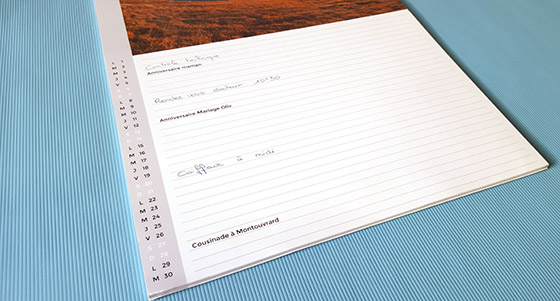 Contrôle technique
Anniversaire maman
Rendez vous docteur 10h30
Anniversaire Mariage Oliv
Coiffeur à midi
Cousinade à Montouvrard
L 8
M 9
M 10
J 11
V 12
L 15
M 16
M 17
J 18
V 19
L 22
M 23
M 24
J 25
V 26
D 28
L 29
M 30